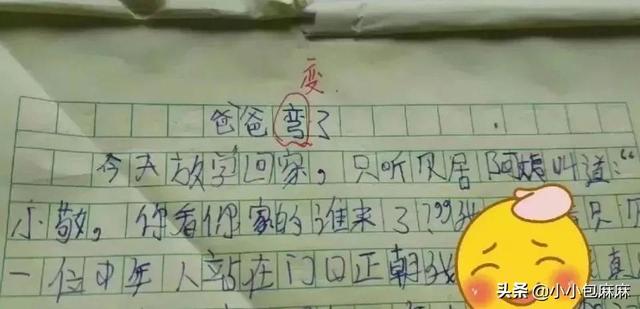 变
爸爸弯了
今天放学回家，只听贝居阿姨叫道："
小敬，你看你家的谁来了???我
一位中年人站在门口正朝我
头条 @小小包麻麻